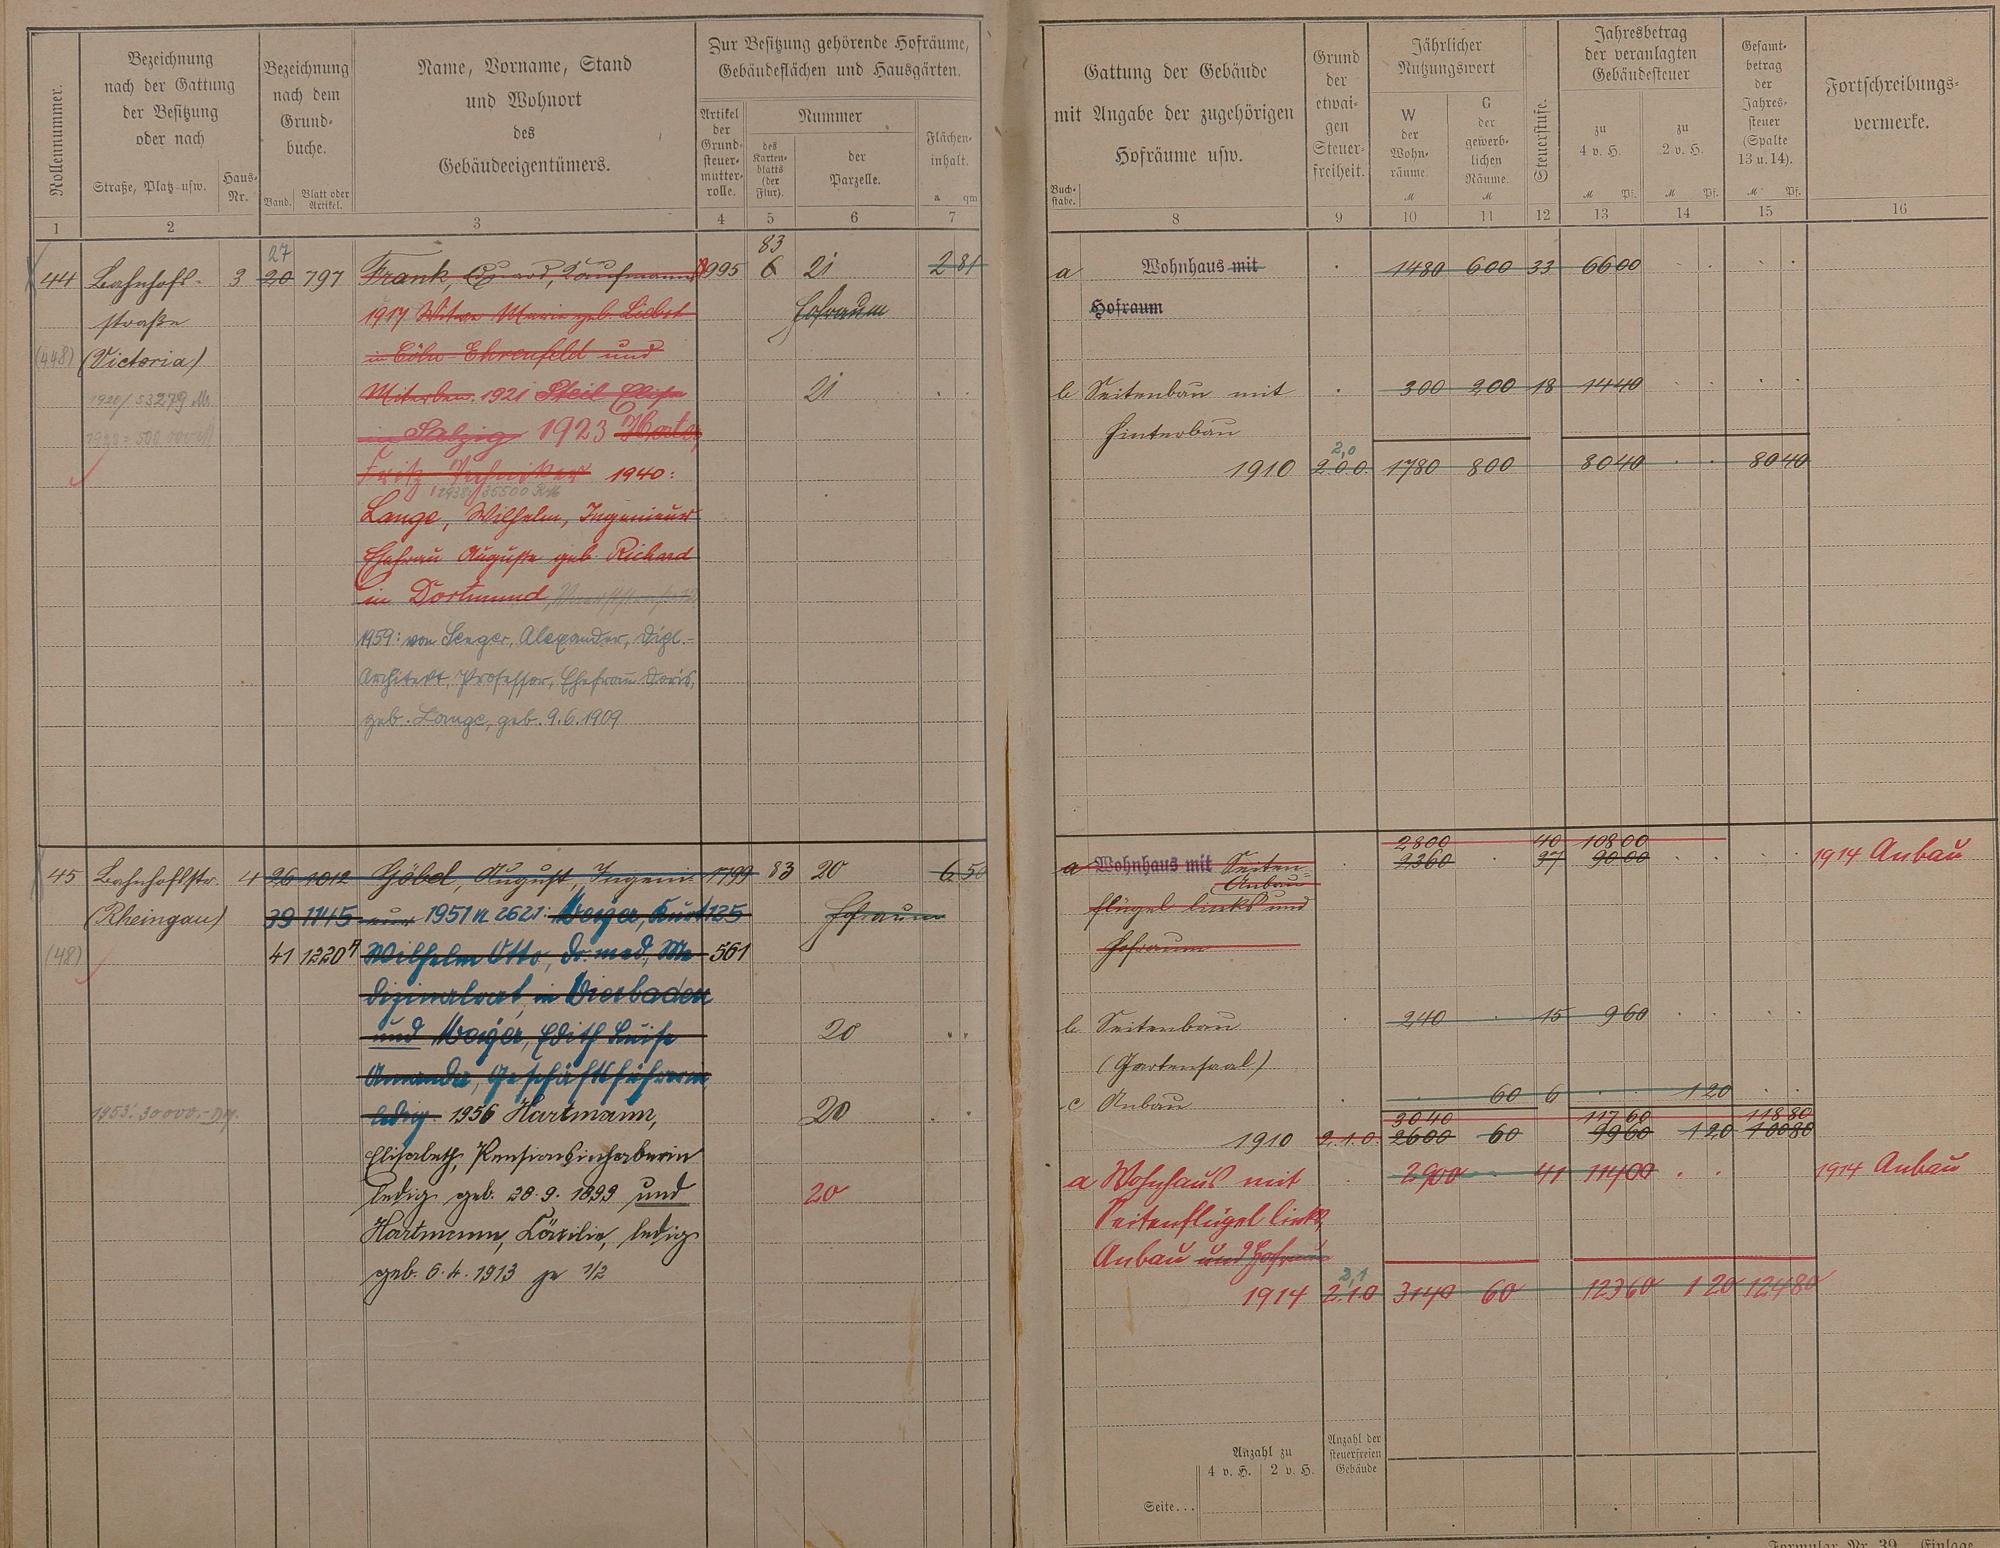 Rollennummer.
Bezeichnung
nach der Gattung
der Besitzung
oder nach
Straße, Platz usw.
Haus-
Nr.
Bezeichnung
nach dem
Grund-
buche.
Band.
Blatt oder
Artikel.
Name, Vorname, Stand
und Wohnort
des
Gebäudeeigentümers.
Zur Besitzung gehörende Hofräume,
Gebäudeflächen und Hausgärten.
Artikel
der
Grund-
steuer-
mutter-
rolle.
Nummer
des
Karten-
blatts
(der
Flur).
der
Parzelle.
Flächen-
inhalt.
a qm
1 2 3 4 5 6 7
27 83
44 Bahnhof- 3 20 797 Frank, Eduard, Kaufmann 995 6 21 2 81
straße 1917 Witwe Marie geb. Liebst Hofraum
(448) (Victoria) in Cöln-Ehrenfeld und
1920/ 53279 M. Miterben. 1921 Steil Elise 21
in Salzig 1923
Fritz Techniker 1940:
1938: 35500 RM
Lange, Wilhelm, Ingenieur
Ehefrau Auguste geb. Richard
in Dortmund
1959: von Seeger, Alexander, Dipl.-
Architekt, Professor, Ehefrau Doris,
geb. Lange, geb. 9.6.1909
45 Bahnhofstr. 4 26 1012 Göbel, August, Ingeni- 1799 83 20 6 50
(Rheingau) 39 1145 eur 1951 N 2621: Kurt 125 Hofraum
(48) 41 1220 A Wilhelm Otto, Dr. med., Me- 561
dizinalrat, in Wiesbaden
und Edith Luise 20
Amanda, Geschäftsführerin
1953: 30000.- DM. ledig. 1956 Hartmann, 20
Elisabeth, Pensionsinhaberin
ledig geb. 28.9.1899 und 20
Hartmann, Cäcilie, ledig
geb. 6.4.1913 je 1/2
Gattung der Gebäude
mit Angabe der zugehörigen
Hofräume usw.
Buch-
stabe.
Grund
der
etwai-
gen
Steuer-
freiheit.
Jährlicher
Nutzungswert
W
der
Wohn-
räume.
M
G
der
gewerb-
lichen
Räume.
M
Steuerstufe.
Jahresbetrag
der veranlagten
Gebäudesteuer
zu
4 v. H.
M Pf.
zu
2 v. H.
M Pf.
Gesamt-
betrag
der
Jahres-
steuer
(Spalte
13 u. 14).
M Pf.
Fortschreibungs-
vermerke.
8 9 10 11 12 13 14 15 16
a Wohnhaus mit 1480 600 33 6600
Hofraum
b Seitenbau mit 300 200 18 1440
Hinterbau
2,0
1910 2.0.0. 1780 800 8040 8040
2800 40 10800 1914 Anbau
a Wohnhaus mit Seiten- 2360 37 9000
Anbau
flügel links und
Hofraum
b Seitenbau 240 15 960
(Gartensaal)
c Anbau 60 6 1 20
3040 11760 11880
1910 2.1.0. 2600 60 9960 1 20 10080
a Wohnhaus mit 2900 41 11400 1914 Anbau
Seitenflügel links,
Anbau und Hofraum
2,1
1914 2.1.0 3140 60 12360 1 20 12480
Anzahl zu
4 v. H. 2 v. H.
Anzahl der
steuerfreien
Gebäude
Seite...
Formular Nr. 39. Einlage